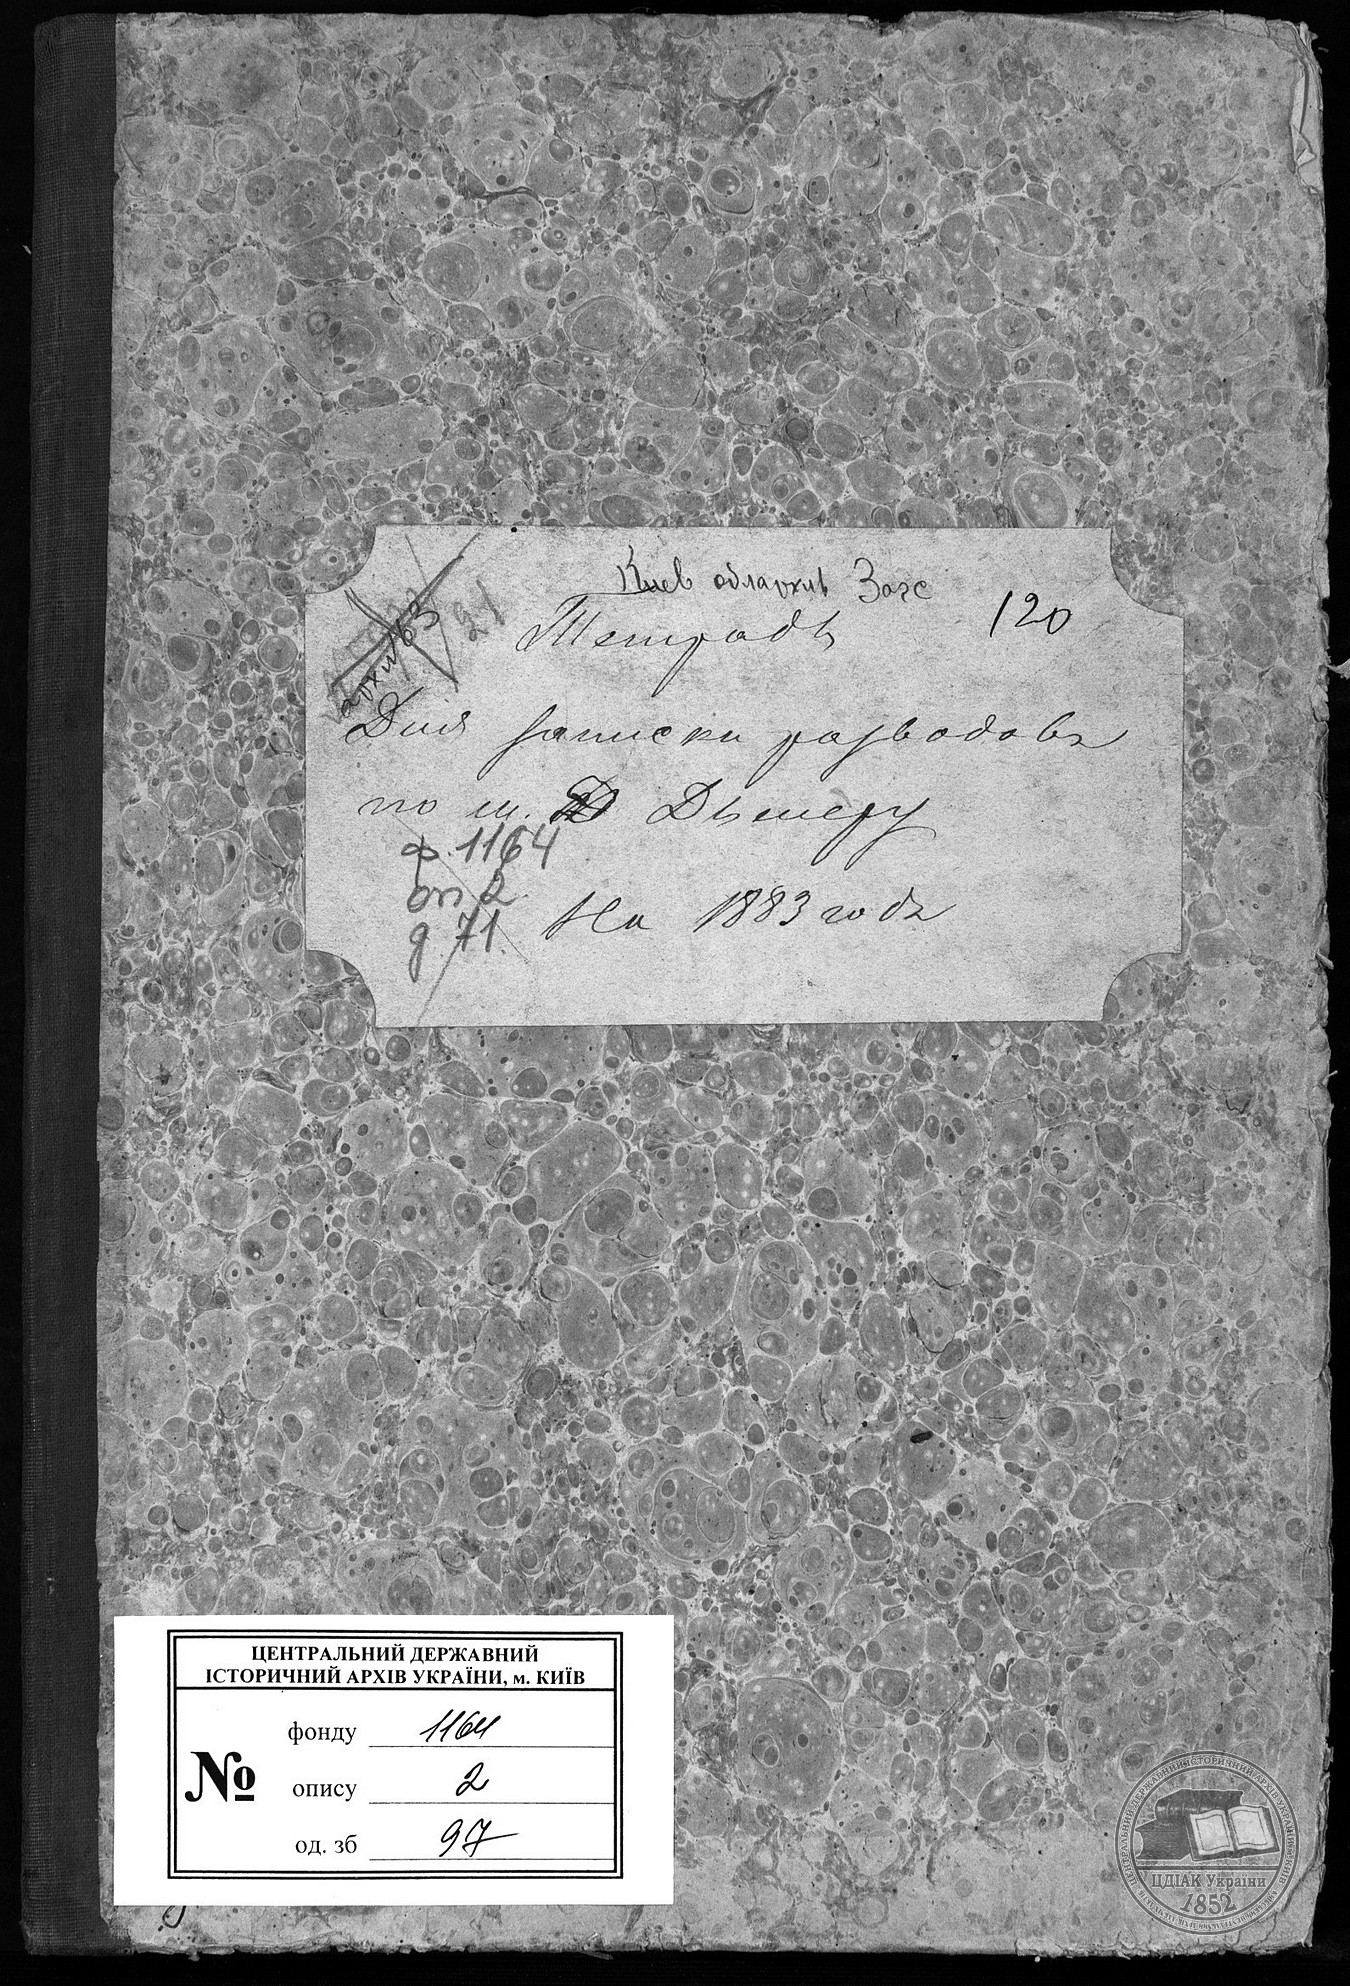 Киев обларxив Загс
120
Тетрадь
архив 63
21
Для записки разводовъ
по м. Дымеру
ф. 1164
оп 2.
д. 71.
На 1883 годъ
ЦЕНТРАЛЬНИЙ ДЕРЖАВНИЙ
ІСТОРИЧНИЙ АРХІВ УКРАЇНИ, м. КИЇВ
№
фонду 1164
опису 2
од. зб 97
ЦДІАК України
1852